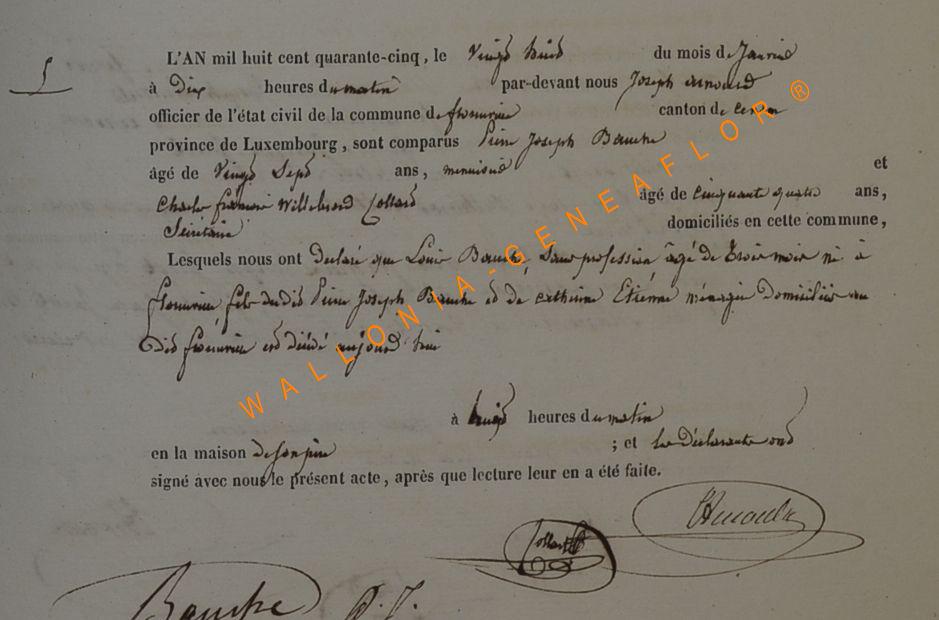 5
L'AN mil huit cent quarante-cinq, le Vingt huit du mois de Janvier
à Dix heures du matin par-devant nous Joseph arnould
officier de l'état civil de la commune de florenville canton de
province de Luxembourg, sont comparus Pierre Joseph Bauche
âgé de Vingt Sept ans, menuisier et
Charles françois Willebrord Collard âgé de Cinquante quatre ans,
Secrétaire domiciliés en cette commune,
Lesquels nous ont Déclaré que Louis Bauche, Sans profession âgé de trois mois né à
fils dudit Pierre Joseph Bauche et de catherine Etienne ménagère Domiciliés au
Dit est décédé aujourd'hui
à heures du matin
en la maison de son père ; et les Déclarants ont
signé avec nous le présent acte, après que lecture leur en a été faite.
Collard Arnould
Bauche P. J.
WALLONIA-GENEAFLOR ®